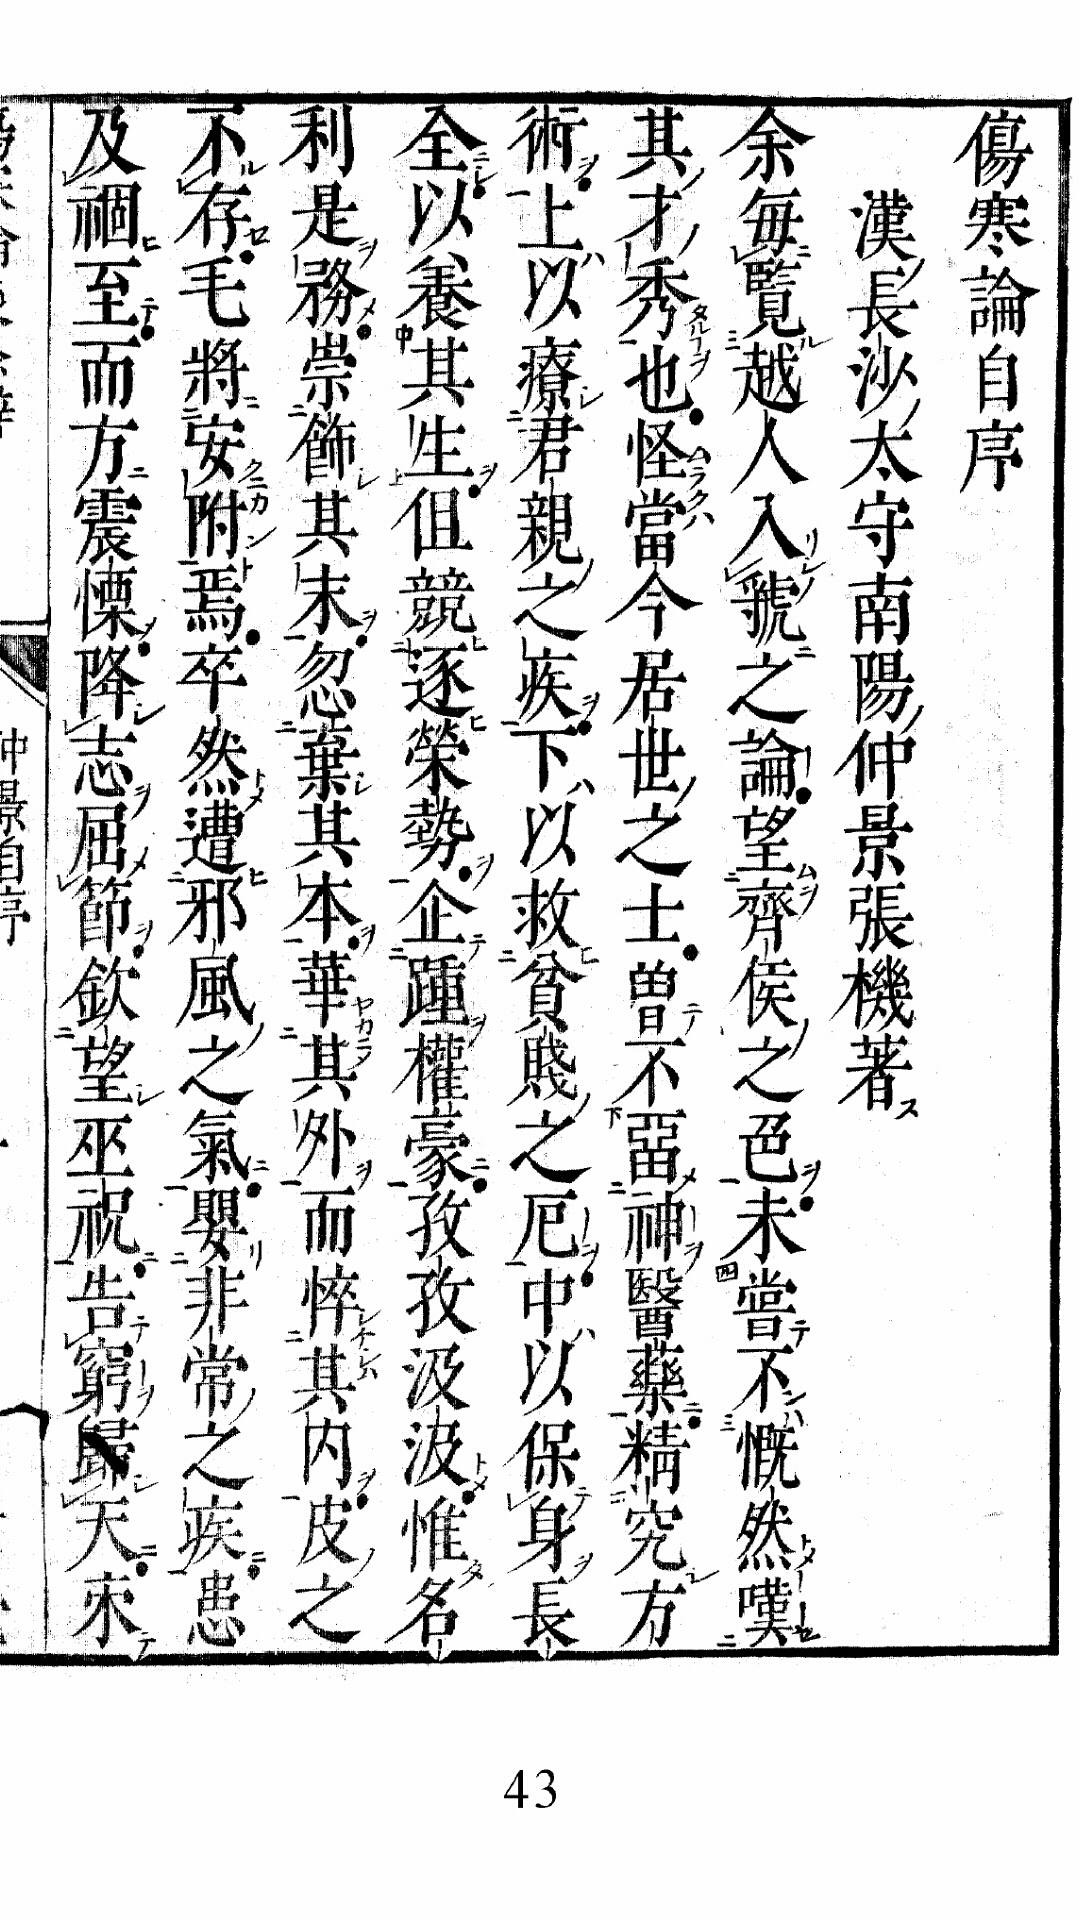 傷寒論自序
漢長沙太守南陽仲景張機著
余每覽越人入虢之論望齊侯之色未嘗不慨然嘆
其才秀也怪當今居世之士曾不畱神醫藥精究方
術上以療君親之疾下以救貧賤之厄中以保身長
全以養其生但競逐榮勢企踵權豪孜孜汲汲惟名
利是務崇飾其末忽棄其本華其外而悴其内皮之
不存毛將安附焉卒然遭邪風之氣嬰非常之疾患
及禍至而方震慄降志屈節欽望巫祝告窮歸天束
仲景自序
43